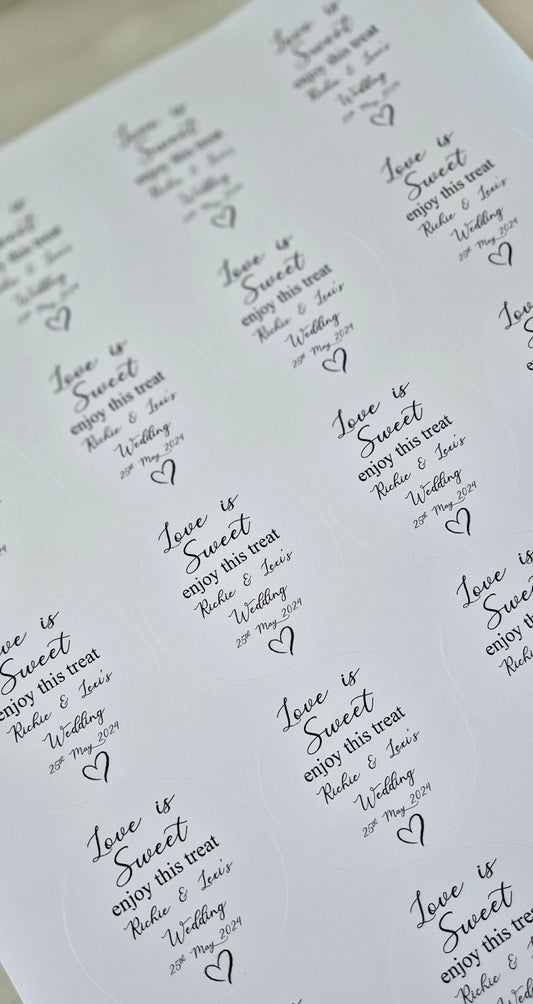 Love is
Sweet
enjoy this treat
Richie & Lexi's
Wedding
25th May 2024
Love is
Sweet
enjoy this treat
Richie & Lexi's
Wedding
25th May 2024
Love is
Sweet
enjoy this treat
Richie & Lexi's
Wedding
25th May 2024
Love is
Sweet
enjoy this treat
Richie & Lexi's
Wedding
25th May 2024
Love is
Sweet
enjoy this treat
Richie & Lexi's
Wedding
25th May 2024
Love is
Sweet
enjoy this treat
Richie & Lexi's
Wedding
25th May 2024
Love is
Sweet
enjoy this treat
Richie & Lexi's
Wedding
25th May 2024
Love is
Sweet
enjoy this treat
Richie & Lexi's
Wedding
25th May 2024
Love is
Sweet
enjoy this treat
Richie & Lexi's
Wedding
25th May 2024
Love is
Sweet
enjoy this treat
Richie & Lexi's
Wedding
25th May 2024
Love is
Sweet
enjoy this
Richie &
Love is
Sweet
enjoy this treat
Richie & Lexi's
Wedding